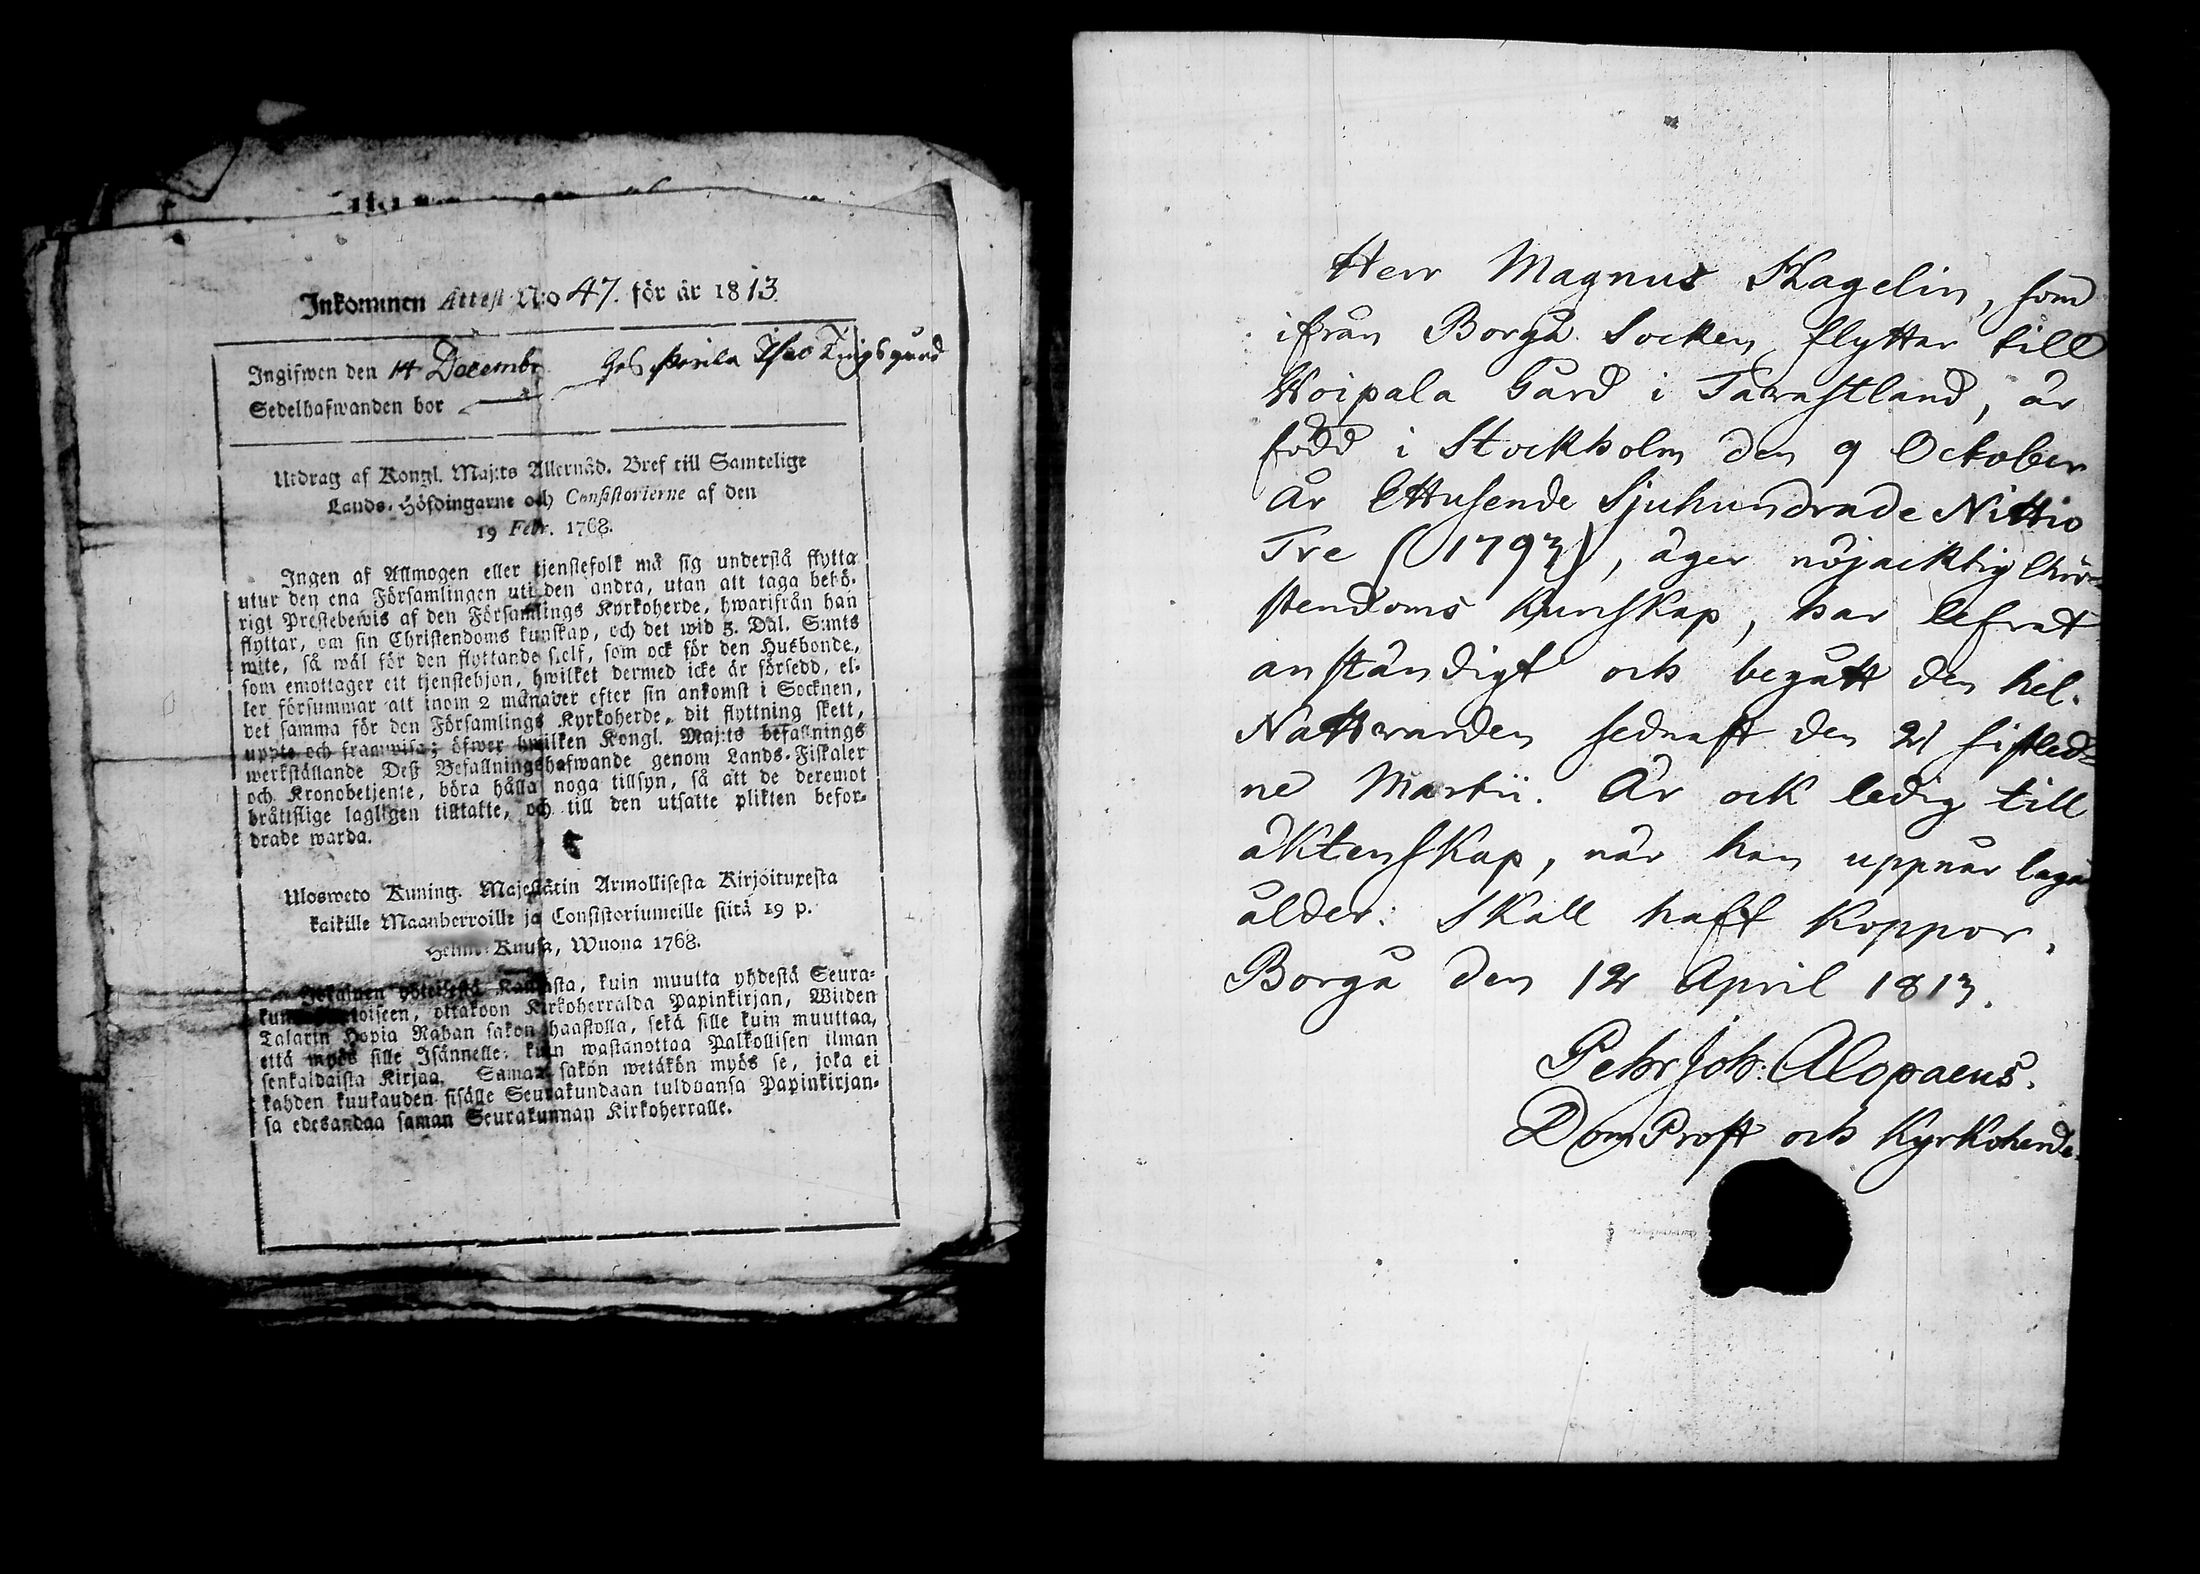 Inkommen Attest N:o 47. för år 1813.
Ingifwen den 14 Decembr
Sedelhafwanden bor
Utdrag af Kongl. Maj:ts Allernåd. Bref till Samtelige
Lands-Höfdingarne och Consistorierne af den
19 Febr. 1768.
Ingen af Allmogen eller tjenstefolk må sig understå flytta
utur den ena Församlingen uti den andra, utan att taga behö-
rigt Prestebewis af den Församlings Kyrkoherde, hwarifrån han
flyttar, om sin Christendoms kunskap, och det wid 3. Dal. S:mts
wite, så wäl för den flyttande sielf, som ock för den Husbonde,
som emottager ett tjenstehjon, hwilket dermed icke är försedd, el-
ler försummar att inom 2 månader efter sin ankomst i Socknen,
det samma för den Församlings Kyrkoherde, dit flyttning skett,
uppte och framwisa; öfwer hwilken Kongl. Maj:ts befallnings
werkställande Deß Befallningshafwande genom Lands-Fiskaler
och Kronobetjente, böra hålla noga tillsyn, så att de deremot
bråttslige lagligen tilltalte, och till den utsatte plikten befor-
drade warda.
Ulosweto Kuning. Majestätin Armollisesta Kirjoituxesta
kaikille Maanherroille ja Consistoriumeille siitä 19 p.
Helm. Kuusa, Wuona 1768.
Jokainen yhteisestä Kansasta, kuin muutta yhdestä Seura-
toiseen, ottakoon Kirkoherralda Papinkirjan, Wiiden
Talarin Hopia Rahan sakon haastolla, sekä sille kuin muuttaa,
että myös sille Isännelle, kuin wastanottaa Palkollisen ilman
senkaldaista Kirjaa. Saman sakon wetäkön myös se, joka ei
kahden kuukauden sisälle Seurakundaan tulduansa Papinkirjan-
sa edesandaa saman Seurakunnan Kirkoherralle.
Herr Magnus Skagelin, som
ifrån Borgå Socken flyttar till
Hoipala Gård i Tawastland, är
född i Stockholm den 9 October
År Ettusende Sjuhundrade Nittio
Tre (1793), äger nöjacktig Chri-
stendoms Kunskap, har lefvat
anständigt och begått den hel.
Nattwarden sednast den 21 sistled-
ne Martii. Är ock ledig till
äktenskap, när han uppnår laga
ålder: Skall haft Koppor.
Borgå den 12 April 1813.
Pehr Joh: Alopaeus.
DomProst och Kyrkoherde.